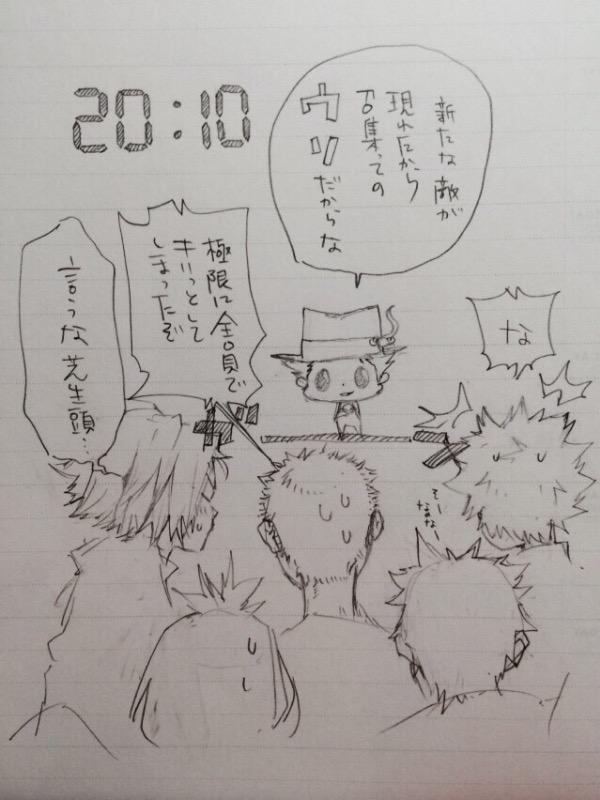 20:10
新たな敵が
現れたから
召集っての
ウソだからな
な
極限に全員で
キリっとして
しまったぞ
言うな芝生頭…
キリッ
てーなのなー